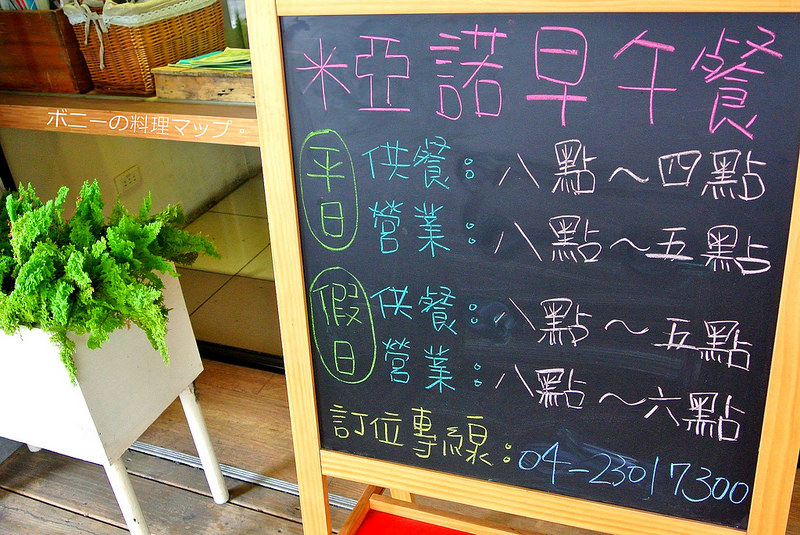 米亞諾早午餐
ボニーの料理マップ。
平日 供餐：八點～四點
營業：八點～五點
假日 供餐：八點～五點
營業：八點～六點
訂位專線：04-23017300